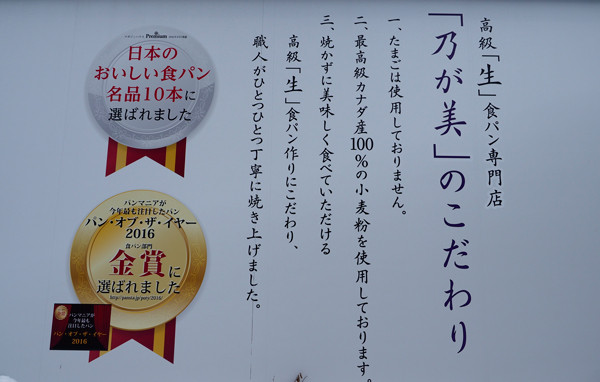 高級「生」食パン専門店
「乃が美」のこだわり
一、たまごは使用しておりません。
二、最高級カナダ産100%の小麦粉を使用しております。
三、焼かずに美味しく食べていただける
高級「生」食パン作りにこだわり、
職人がひとつひとつ丁寧に焼き上げました。
Premium
日本の
おいしい食パン
名品10本に
選ばれました
パンマニアが
今年最も注目したパン
パン・オブ・ザ・イヤー
2016
食パン部門
金賞に
選ばれました
http://panota.jp/poty/2016/
パンマニアが
今年最も
注目したパン
パン・オブ・ザ・イヤー
2016